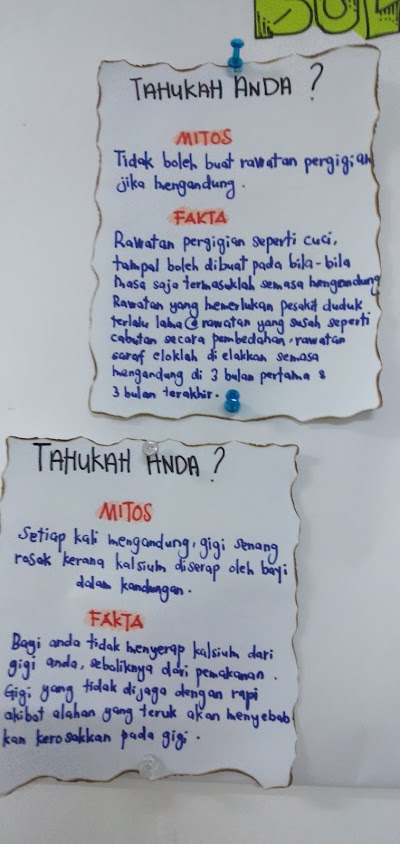 TAHUKAH ANDA ?
MITOS
Tidak boleh buat rawatan pergigian
jika mengandung.
FAKTA
Rawatan pergigian seperti cuci,
tampal boleh dibuat pada bila-bila
masa saja termasuklah semasa mengandung
Rawatan yang memerlukan pesakit duduk
terlalu lama @ rawatan yang susah seperti
cabutan secara pembedahan, rawatan
saraf eloklah di elakkan semasa
mengandung di 3 bulan pertama &
3 bulan terakhir.
TAHUKAH ANDA ?
MITOS
Setiap kali mengandung, gigi senang
rosak kerana kalsium diserap oleh bayi
dalam kandungan.
FAKTA
Bayi anda tidak menyerap kalsium dari
gigi anda, sebaliknya dari pemakanan.
Gigi yang tidak dijaga dengan rapi
akibat alahan yang teruk akan menyebab
kan kerosakkan pada gigi.